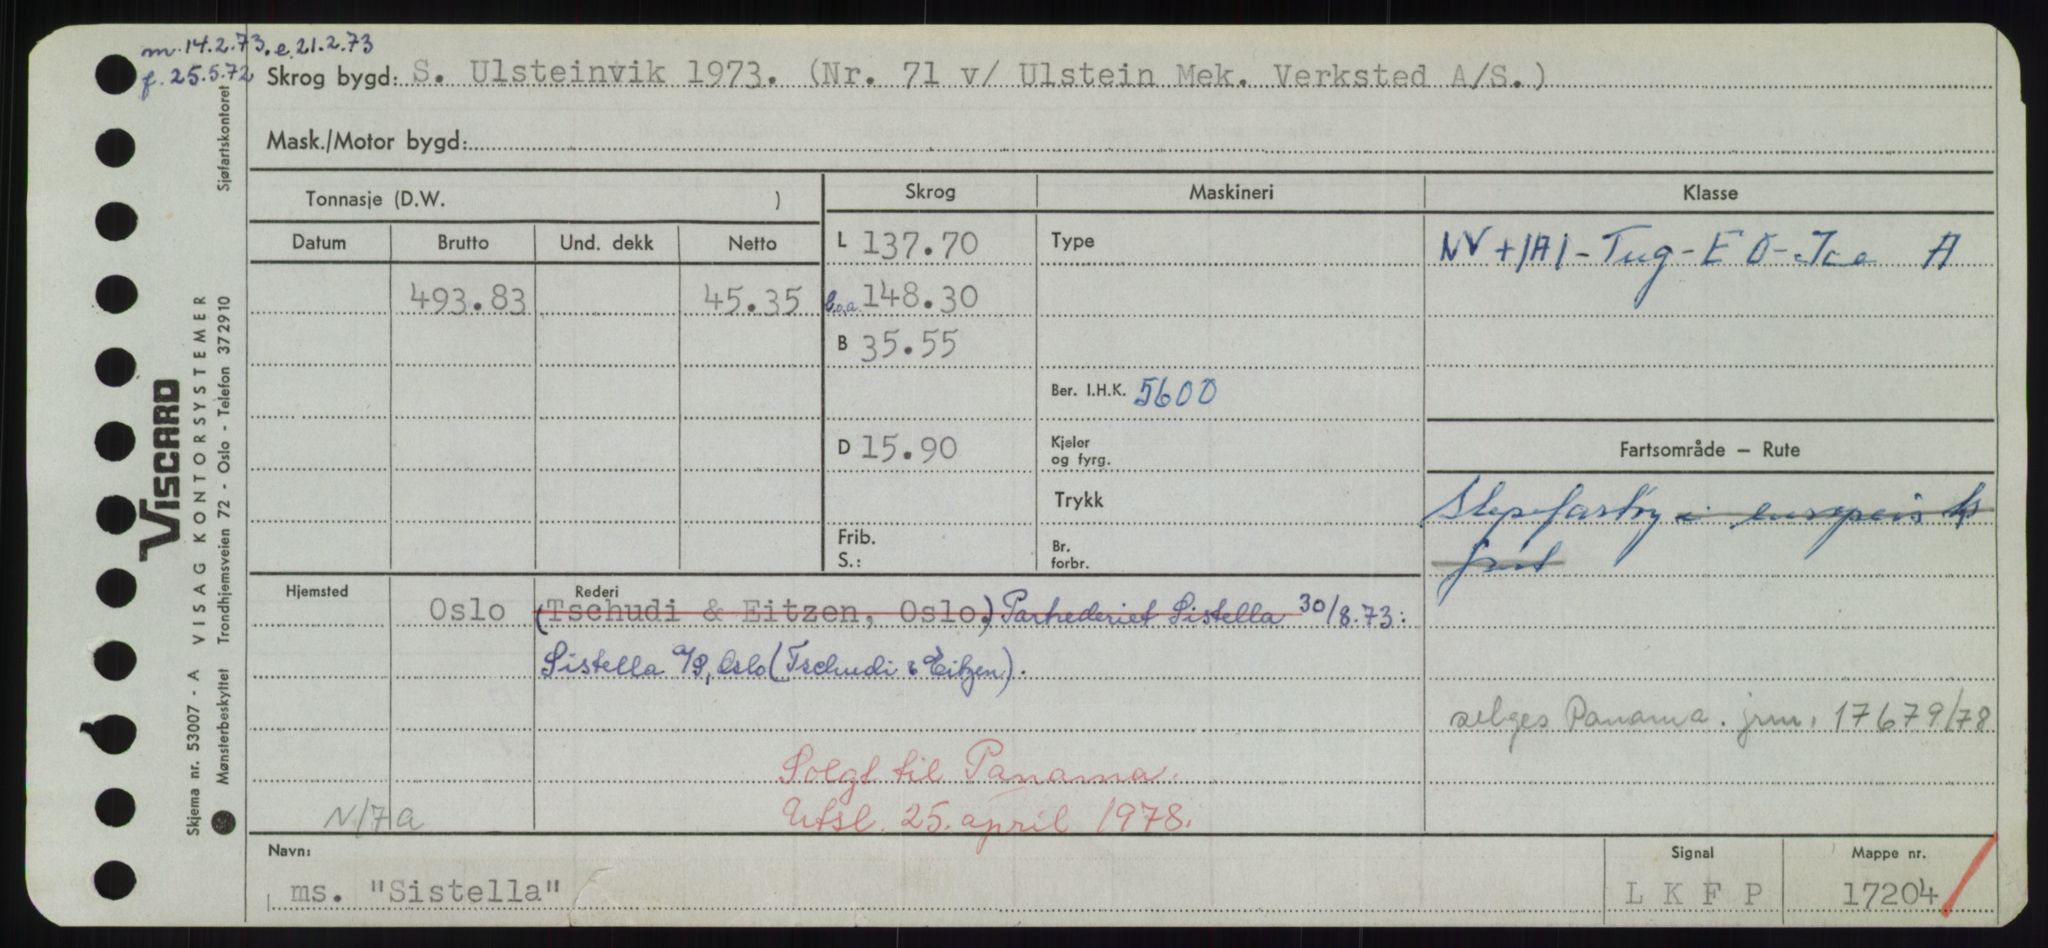 m. 14.2.73. e. 21.2.73
f. 25.5.72
Skrog bygd: S. Ulsteinvik 1973. (Nr. 71 v/ Ulstein Mek. Verksted A/S.)
Mask./Motor bygd:
Tonnasje (D.W. )
Skrog
Maskineri
Klasse
Datum
Brutto
Und. dekk
Netto
L 137.70
Type
NV + 1A1 - Tug - E 0 - Ice A
493.83
45.35
L.o.a. 148.30
B 35.55
Ber. I.H.K. 5600
D 15.90
Kjeler
og fyrg.
Fartsområde – Rute
Trykk
Slepefartøy i europeisk
fart
Frib.
S.:
Br.
forbr.
Hjemsted
Rederi
Oslo
(Tschudi & Eitzen, Oslo.) Partrederiet Sistella 30/8.73:
Sistella A/S, Oslo (Tschudi & Eitzen).
selges Panama. jrn. 17679/78
Solgt til Panama.
Utsl. 25. april 1978.
N/7a
Navn:
ms. "Sistella"
Signal
L K F P
Mappe nr.
17204
VISCARD
VISAG KONTORSYSTEMER
Skjema nr. 53007 - A
Mønsterbeskyttet
Trondhjemsveien 72 - Oslo - Telefon 372910
Sjøfartskontoret